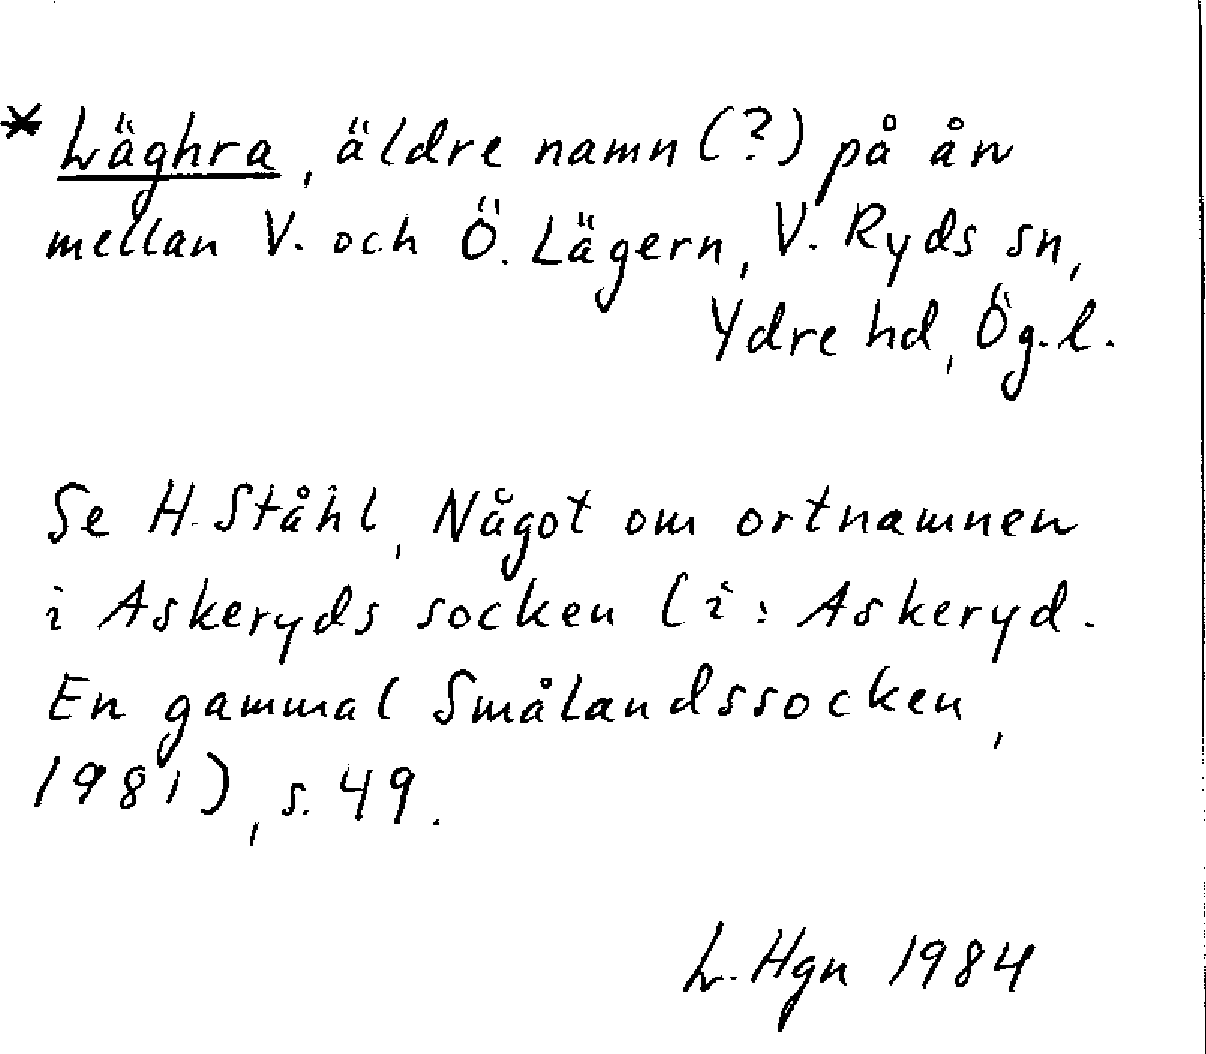 * Läghra, äldre namn (?) på ån
mellan V. och Ö. Lägern, V. Ryds sn,
Ydre hd, Ög.l.
Se H. Ståhl, Något om ortnamnen
i Askeryds socken (i: Askeryd.
En gammal Smålandssocken,
1981), s. 49.
L. Hgn 1984